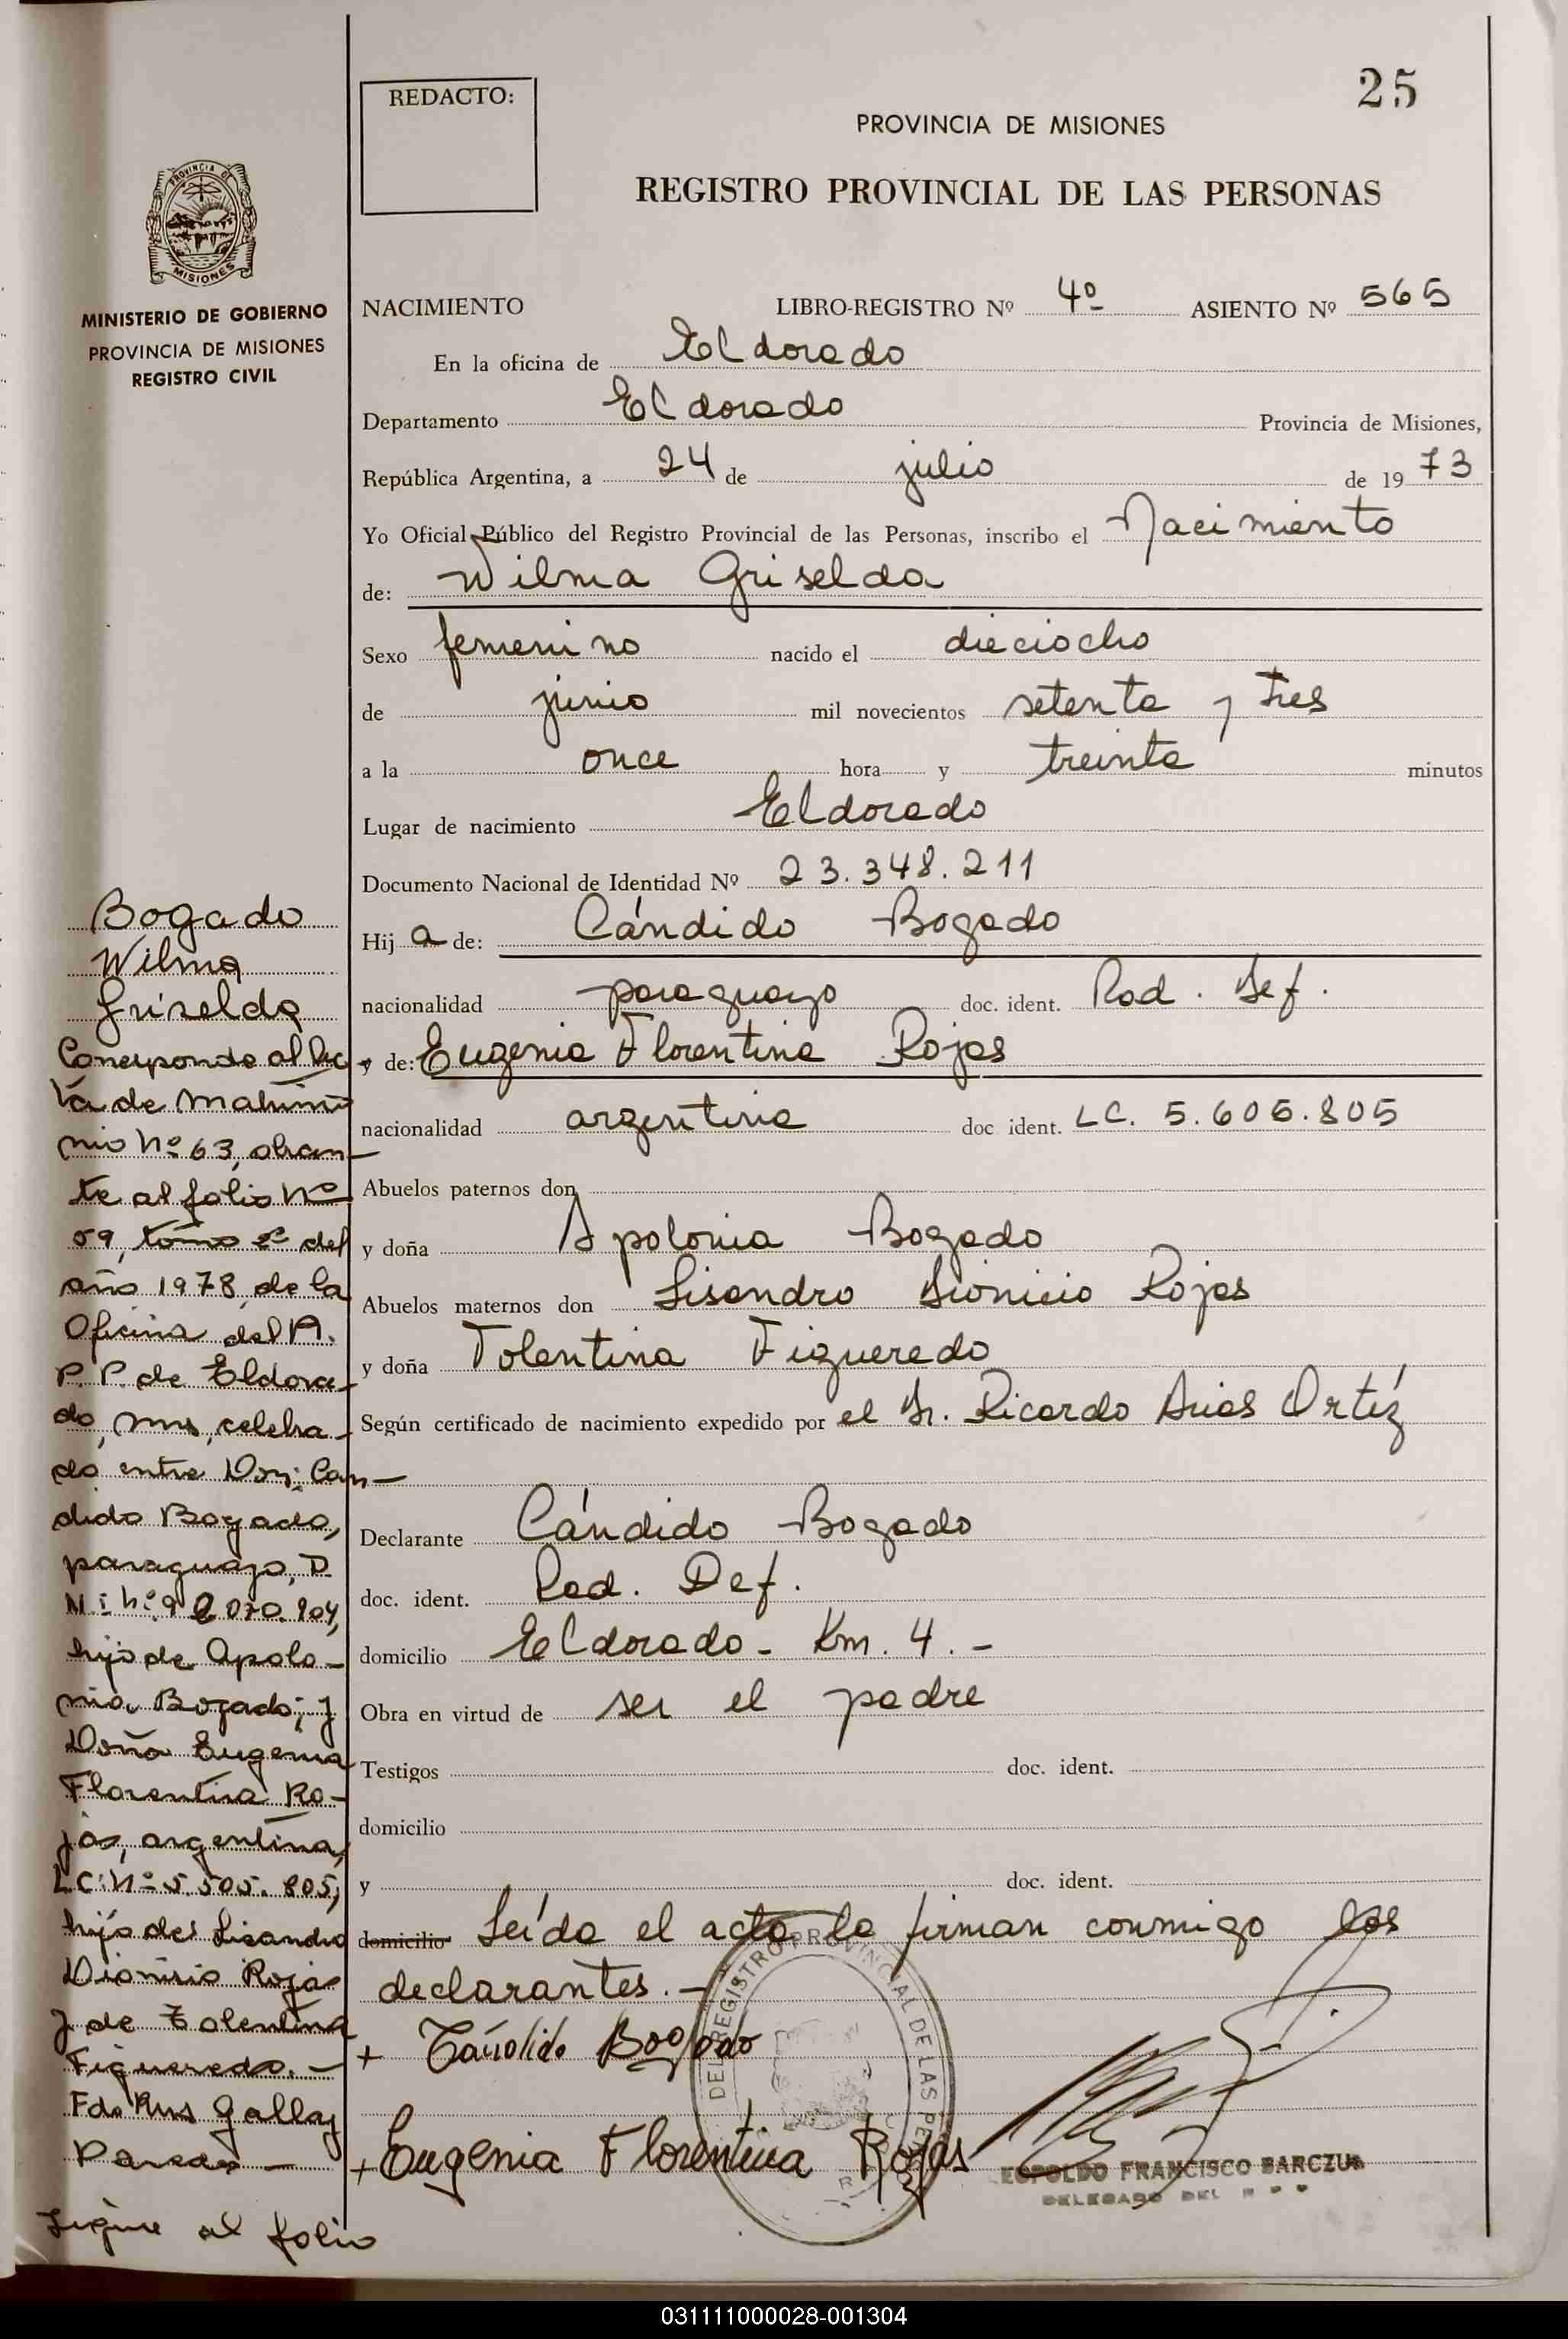 25
REDACTO:
PROVINCIA DE MISIONES
REGISTRO PROVINCIAL DE LAS PERSONAS
PROVINCIA DE
MISIONES
MINISTERIO DE GOBIERNO
PROVINCIA DE MISIONES
REGISTRO CIVIL
NACIMIENTO LIBRO-REGISTRO Nº 4º ASIENTO Nº 565
En la oficina de Eldorado
Departamento Eldorado Provincia de Misiones,
República Argentina, a 24 de julio de 19 73
Yo Oficial Público del Registro Provincial de las Personas, inscribo el Nacimiento
de: Wilma Griselda
Sexo femenino nacido el dieciocho
de junio mil novecientos setenta y tres
a la once hora y treinta minutos
Lugar de nacimiento Eldorado
Documento Nacional de Identidad Nº 23.348.211
Hij a de: Cándido Bogado
nacionalidad paraguayo doc. ident. Rad. Def.
y de: Eugenia Florentina Rojas
nacionalidad argentina doc ident. LC. 5.605.805
Abuelos paternos don
y doña Apolonia Bogado
Abuelos maternos don Lisandro Dionicio Rojas
y doña Tolentina Figueredo
Según certificado de nacimiento expedido por el Dr. Ricardo Arias Ortíz
Declarante Cándido Bogado
doc. ident. Rad. Def.
domicilio Eldorado - Km. 4. -
Obra en virtud de ser el padre
Testigos doc. ident.
domicilio
y doc. ident.
domicilio Leída el acta la firman conmigo los
declarantes. -
+ Cándido Bogado
+ Eugenia Florentina Rojas
DEL REGISTRO PROVINCIAL DE LAS
LEOPOLDO FRANCISCO BARCZUK
DELEGADO DEL R P P
Bogado
Wilma
Griselda
Corresponde al Ac
ta de Matrimo
nio Nº 63, obran-
te al folio Nº
59, tomo 2º del
año 1978, de la
Oficina del R.
P. P. de Eldora-
do, Mns, celebra-
do entre Don: Can-
dido Bogado,
paraguayo, D.
N.I Nº 92.070.904,
hijo de Apolo-
nia Bogado; y
Doña Eugenia
Florentina Ro-
jas, argentina,
LC: Nº 5.505.805,
hija de: Lisandro
Dionisio Rojas
y de Tolentina
Figueredo. -
Fdo
Paredes -
Sigue al folio
031111000028-001304